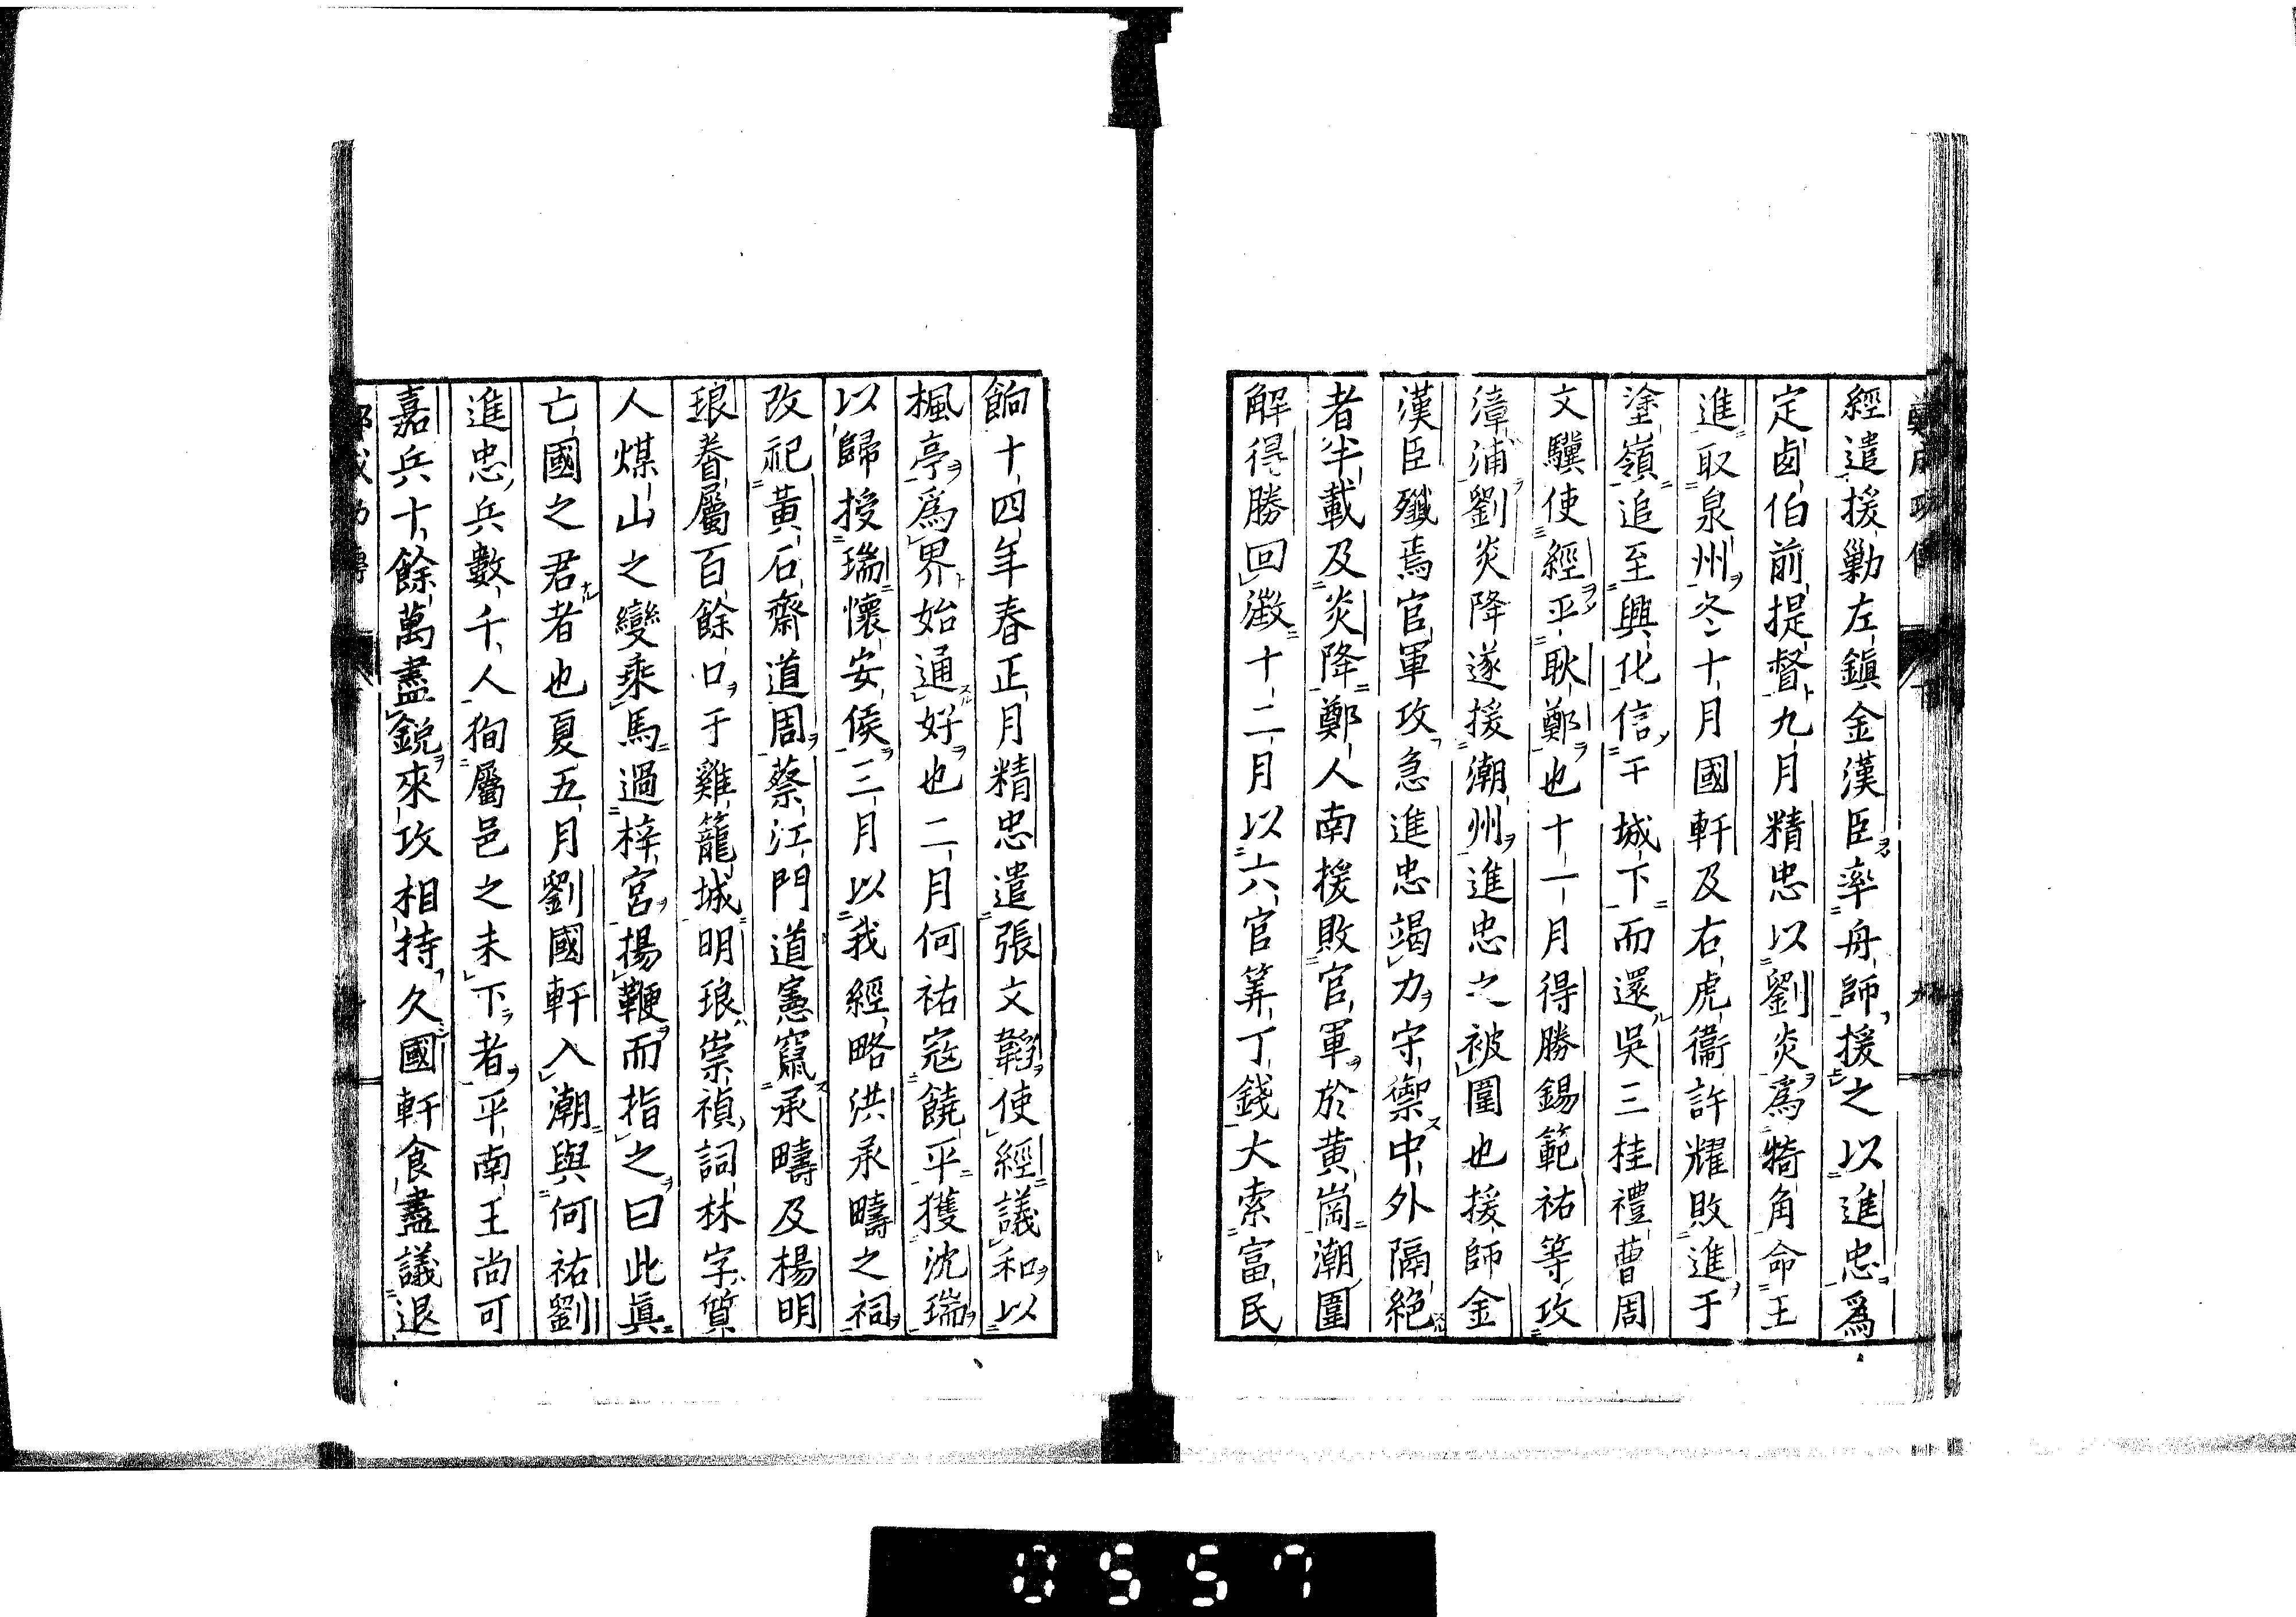 經遣援勦左鎮金漢臣率舟師援之以進忠爲
定鹵伯前提督九月精忠以劉炎爲犄角命王
進取泉州冬十月國軒及右虎衞許耀敗進于
塗嶺追至興化信干城下而還吳三桂禮曹周
文驥使經平耿鄭也十一月得勝錫範祐等攻
漳浦劉炎降遂援潮州進忠之被圍也援師金
漢臣殲焉官軍攻急進忠竭力守禦中外隔絶
者半載及炎降鄭人南援敗官軍於黄崗潮圍
解得勝回澂十二月以六官筭丁錢大索富民
餉十四年春正月精忠遣張文韜使經議和以
楓亭爲界始通好也二月何祐寇饒平獲沈瑞
以歸授瑞懷安侯三月以我經略洪承疇之祠
改祀黄石齋道周蔡江門道憲竄承疇及楊明
琅眷屬百餘口于雞籠城明琅崇禎詞林字質
人煤山之變乘馬過梓宮揚鞭而指之曰此眞
亡國之君者也夏五月劉國軒入潮與何祐劉
進忠兵數千人狥屬邑之未下者平南王尚可
嘉兵十餘萬盡銳來攻相持久國軒食盡議退